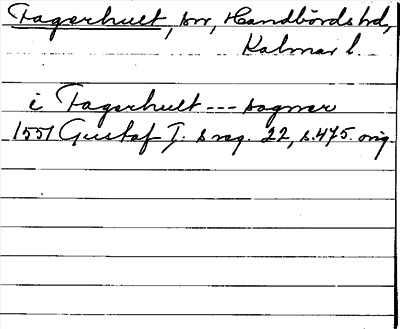 Fagerhult, sn, Handbörds hd,
Kalmar l.
i Fagerhult --- sognær
1551 Gustaf I:s reg. 22, s. 475. orig.